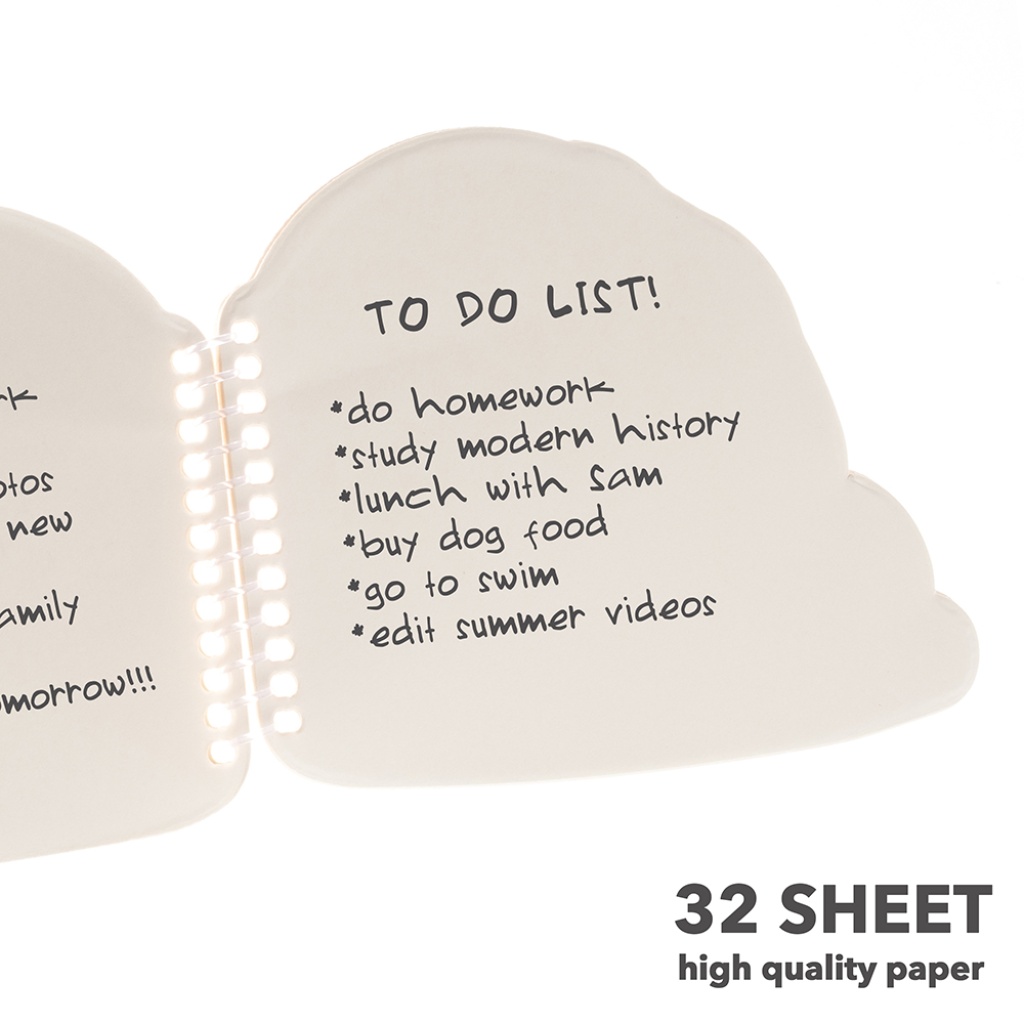 new
TO DO LIST!
*do homework
*study modern history
*lunch with Sam
*buy dog food
*go to swim
*edit summer videos
32 SHEET
high quality paper